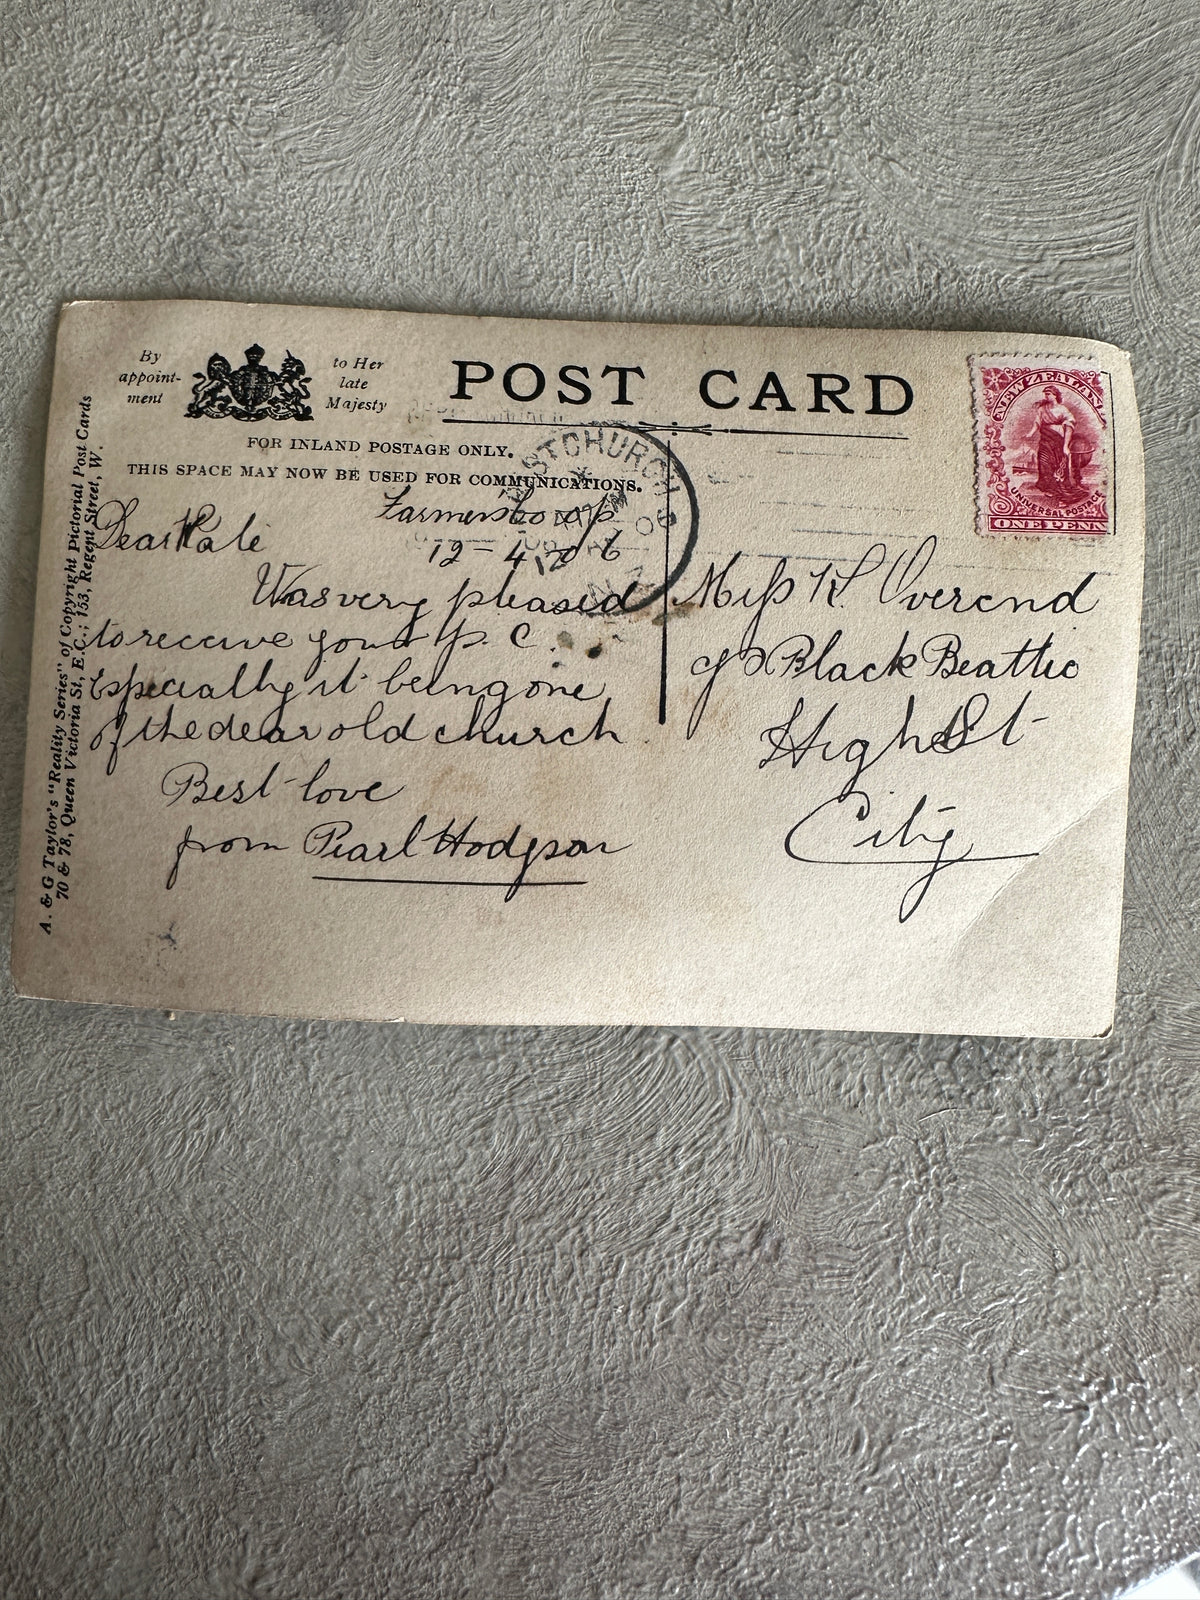 By
appoint-
ment
to Her
late
Majesty
POST CARD
FOR INLAND POSTAGE ONLY.
THIS SPACE MAY NOW BE USED FOR COMMUNICATIONS.
A. & G Taylor's "Reality Series" of Copyright Pictorial Post Cards
70 & 78, Queen Victoria St, E.C.; 153, Regent Street, W.
NEW ZEALAND
UNIVERSAL POSTAGE
ONE PENNY
STCHURCH
Farmers Co op
12-4-06
Dear Kate
Was very pleased
to receive your p. c.
Especially it being one
of the dear old church
Best love
from Pearl Hodgson
Miss K. Overend
c/o Black Beattie
High St
City